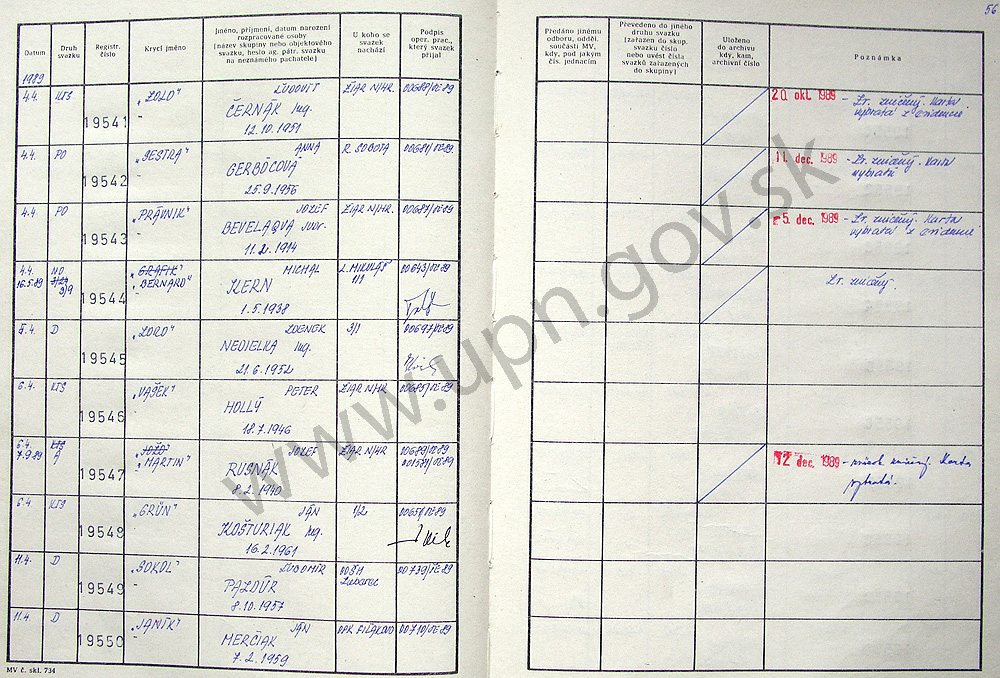 56
Datum
Druh svazku
Registr. číslo
Krycí jméno
Jméno, příjmení, datum narození rozpracované osoby (název skupiny nebo objektového svazku, heslo ag. pátr. svazku na neznámého pachatele)
U koho se svazek nachází
Podpis oper. prac., který svazek přijal
Předáno jinému odboru, odděl. součásti MV, kdy, pod jakým čís. jednacím
Převedeno do jiného druhu svazku (zařazen do skup. svazku číslo nebo uvést čísla svazků zařazených do skupiny)
Uloženo do archivu kdy, kam, archivní číslo
Poznámka
1989
4.4. KTS 19541 „ZOLO" ĽUDOVÍT ŽIAR N/HR.
ČERNÁK Ing.
12.10.1951
20. okt. 1989 - Zv. zničený. Karta
vybratá z evidence
4.4. PO 19542 „SESTRA" ANNA R. SOBOTA
GERBÓCOVÁ
25.9.1956
11. dec. 1989 - Zv. zničený. Karta
vybratá
4.4. PO 19543 „PRÁVNIK" JOZEF ŽIAR N/HR.
BEVELAQVA JUDr.
11.2.1914
5. dec. 1989 - Zv. zničený. Karta
vybratá z evidence
4.4. 19544 „GRAFIK" MICHAL L. MIKULÁŠ
16.5.89 „BERNARD"
KERN
1.5.1938
Zv. zničený.
D 19545 „LORD" ZDENEK 3/1 00697/OE-89
NEDIELKA Ing.
21.6.1952
6.4. KTS 19546 „VAŠEK" PETER ŽIAR N/HR.
HOLLÝ
18.7.1946
6.4. KTS 19547 JOZEF ŽIAR N/HR
7.9.89 A „MARTIN"
RUSNÁK
8.2.1940
12 dec. 1989 - zničený. Karta
vybratá.
6.4. KTS 19548 „GRÜN" JÁN 1/2
KOŠTURIAK Ing.
16.2.1961
11.4. D 19549 „SOKOL" ĽUBOMÍR 00739/OE-89
PAZDÚR
8.10.1957
11.4. D 19550 „JANÍK" JÁN OPK FIĽAKOVO 00710/OE-89
MERČIAK
7.2.1959
MV č. skl. 734
www.upn.gov.sk